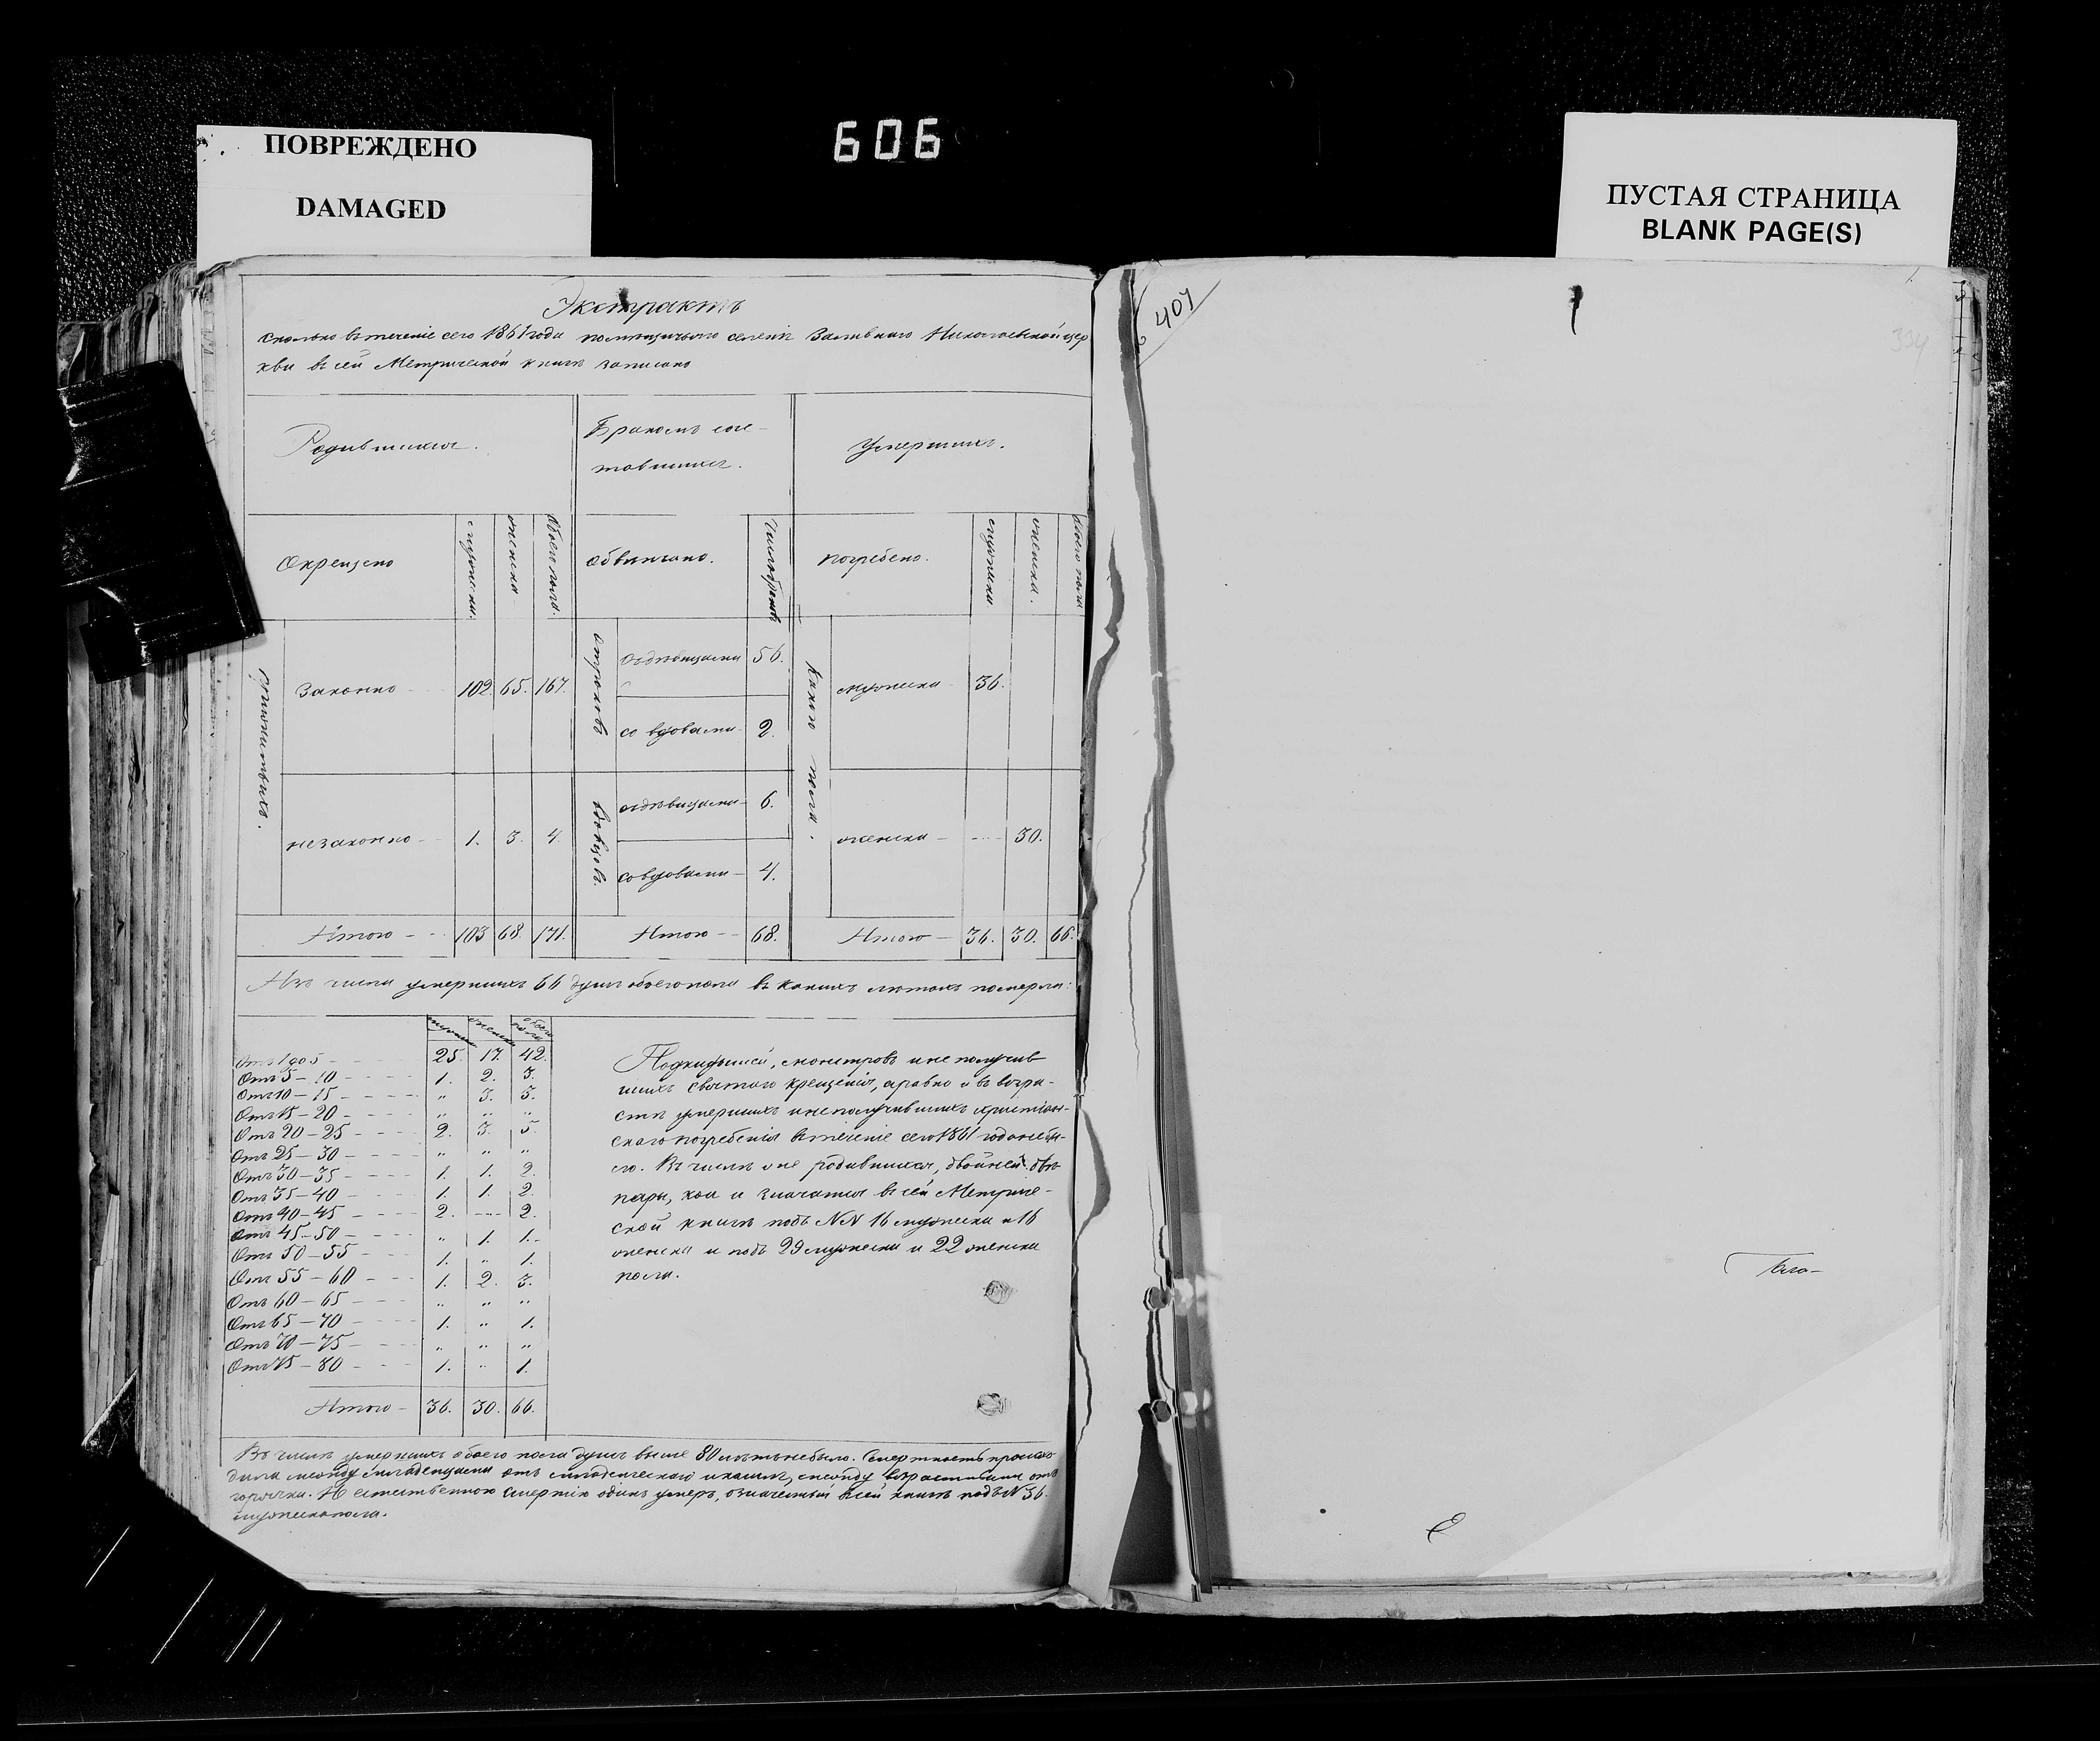 ПОВРЕЖДЕНО
DAMAGED
606
ПУСТАЯ СТРАНИЦА
BLANK PAGE(S)
Экстрактъ
сколько въ теченіе сего 1861 года помѣщичьяго селенія Заливнаго Николаевской цер
кви въ сей Метрической книгѣ записано
Родившихся.
Бракомъ соче-
тавшихся.
Умершихъ.
Окрещено
мужеска.
женска
Обоего пола.
Обвѣнчано.
Число браковъ
Погребено.
мужеска
женска.
Обоего пола
Законно 102. 65. 167.
отроковъ
съ дѣвицами 56.
со вдовами 2.
Какого пола.
мужеска 36.
незаконно 1. 3. 4.
вдовцовъ.
съ дѣвицами 6.
со вдовами 4.
женска 30.
Итого 103 68. 171.
Итого 68.
Итого 36. 30. 66.
Изъ числа умершихъ 66 душъ обоего пола въ какихъ лѣтахъ померли:
мужеска женска обоего пола
Отъ 1 до 5 25. 17. 42.
Отъ 5 – 10 1. 2. 3.
Отъ 10 – 15 " 3. 3.
Отъ 15 – 20 " " "
Отъ 20 – 25 2. 3. 5.
Отъ 25 – 30 " " "
Отъ 30 – 35 1. 1. 2.
Отъ 35 – 40 1. 1. 2.
Отъ 40 – 45 2. --- 2.
Отъ 45 – 50 " 1. 1.
Отъ 50 – 55 1. " 1.
Отъ 55 – 60 1. 2. 3.
Отъ 60 – 65 " " "
Отъ 65 – 70 1. " 1.
Отъ 70 – 75 " " "
Отъ 75 – 80 1. " 1.
Итого 36. 30. 66.
Подкидышей, монстровъ и не получив
шихъ святаго крещенія, а равно и въ возра-
стѣ умершихъ и не получившихъ христіан-
скаго погребенія въ теченіе сего 1861 года небы-
ло. Въ числѣ же родившихся, двойней двѣ
пары, кои и значатся въ сей Метриче-
ской книгѣ подъ NN 16 мужеска и 16
женска и подъ 29 мужеска и 22 женска
пола.
Въ числѣ умершихъ обоего пола душъ выше 80 лѣтъ небыло. Смертность происхо
дила между младенцами отъ младенческаго и кашля, между возрастными отъ
горячки. Не естественною смертію одинъ умеръ, означенный въ сей книгѣ подъ N 36.
мужеска пола.
407
334